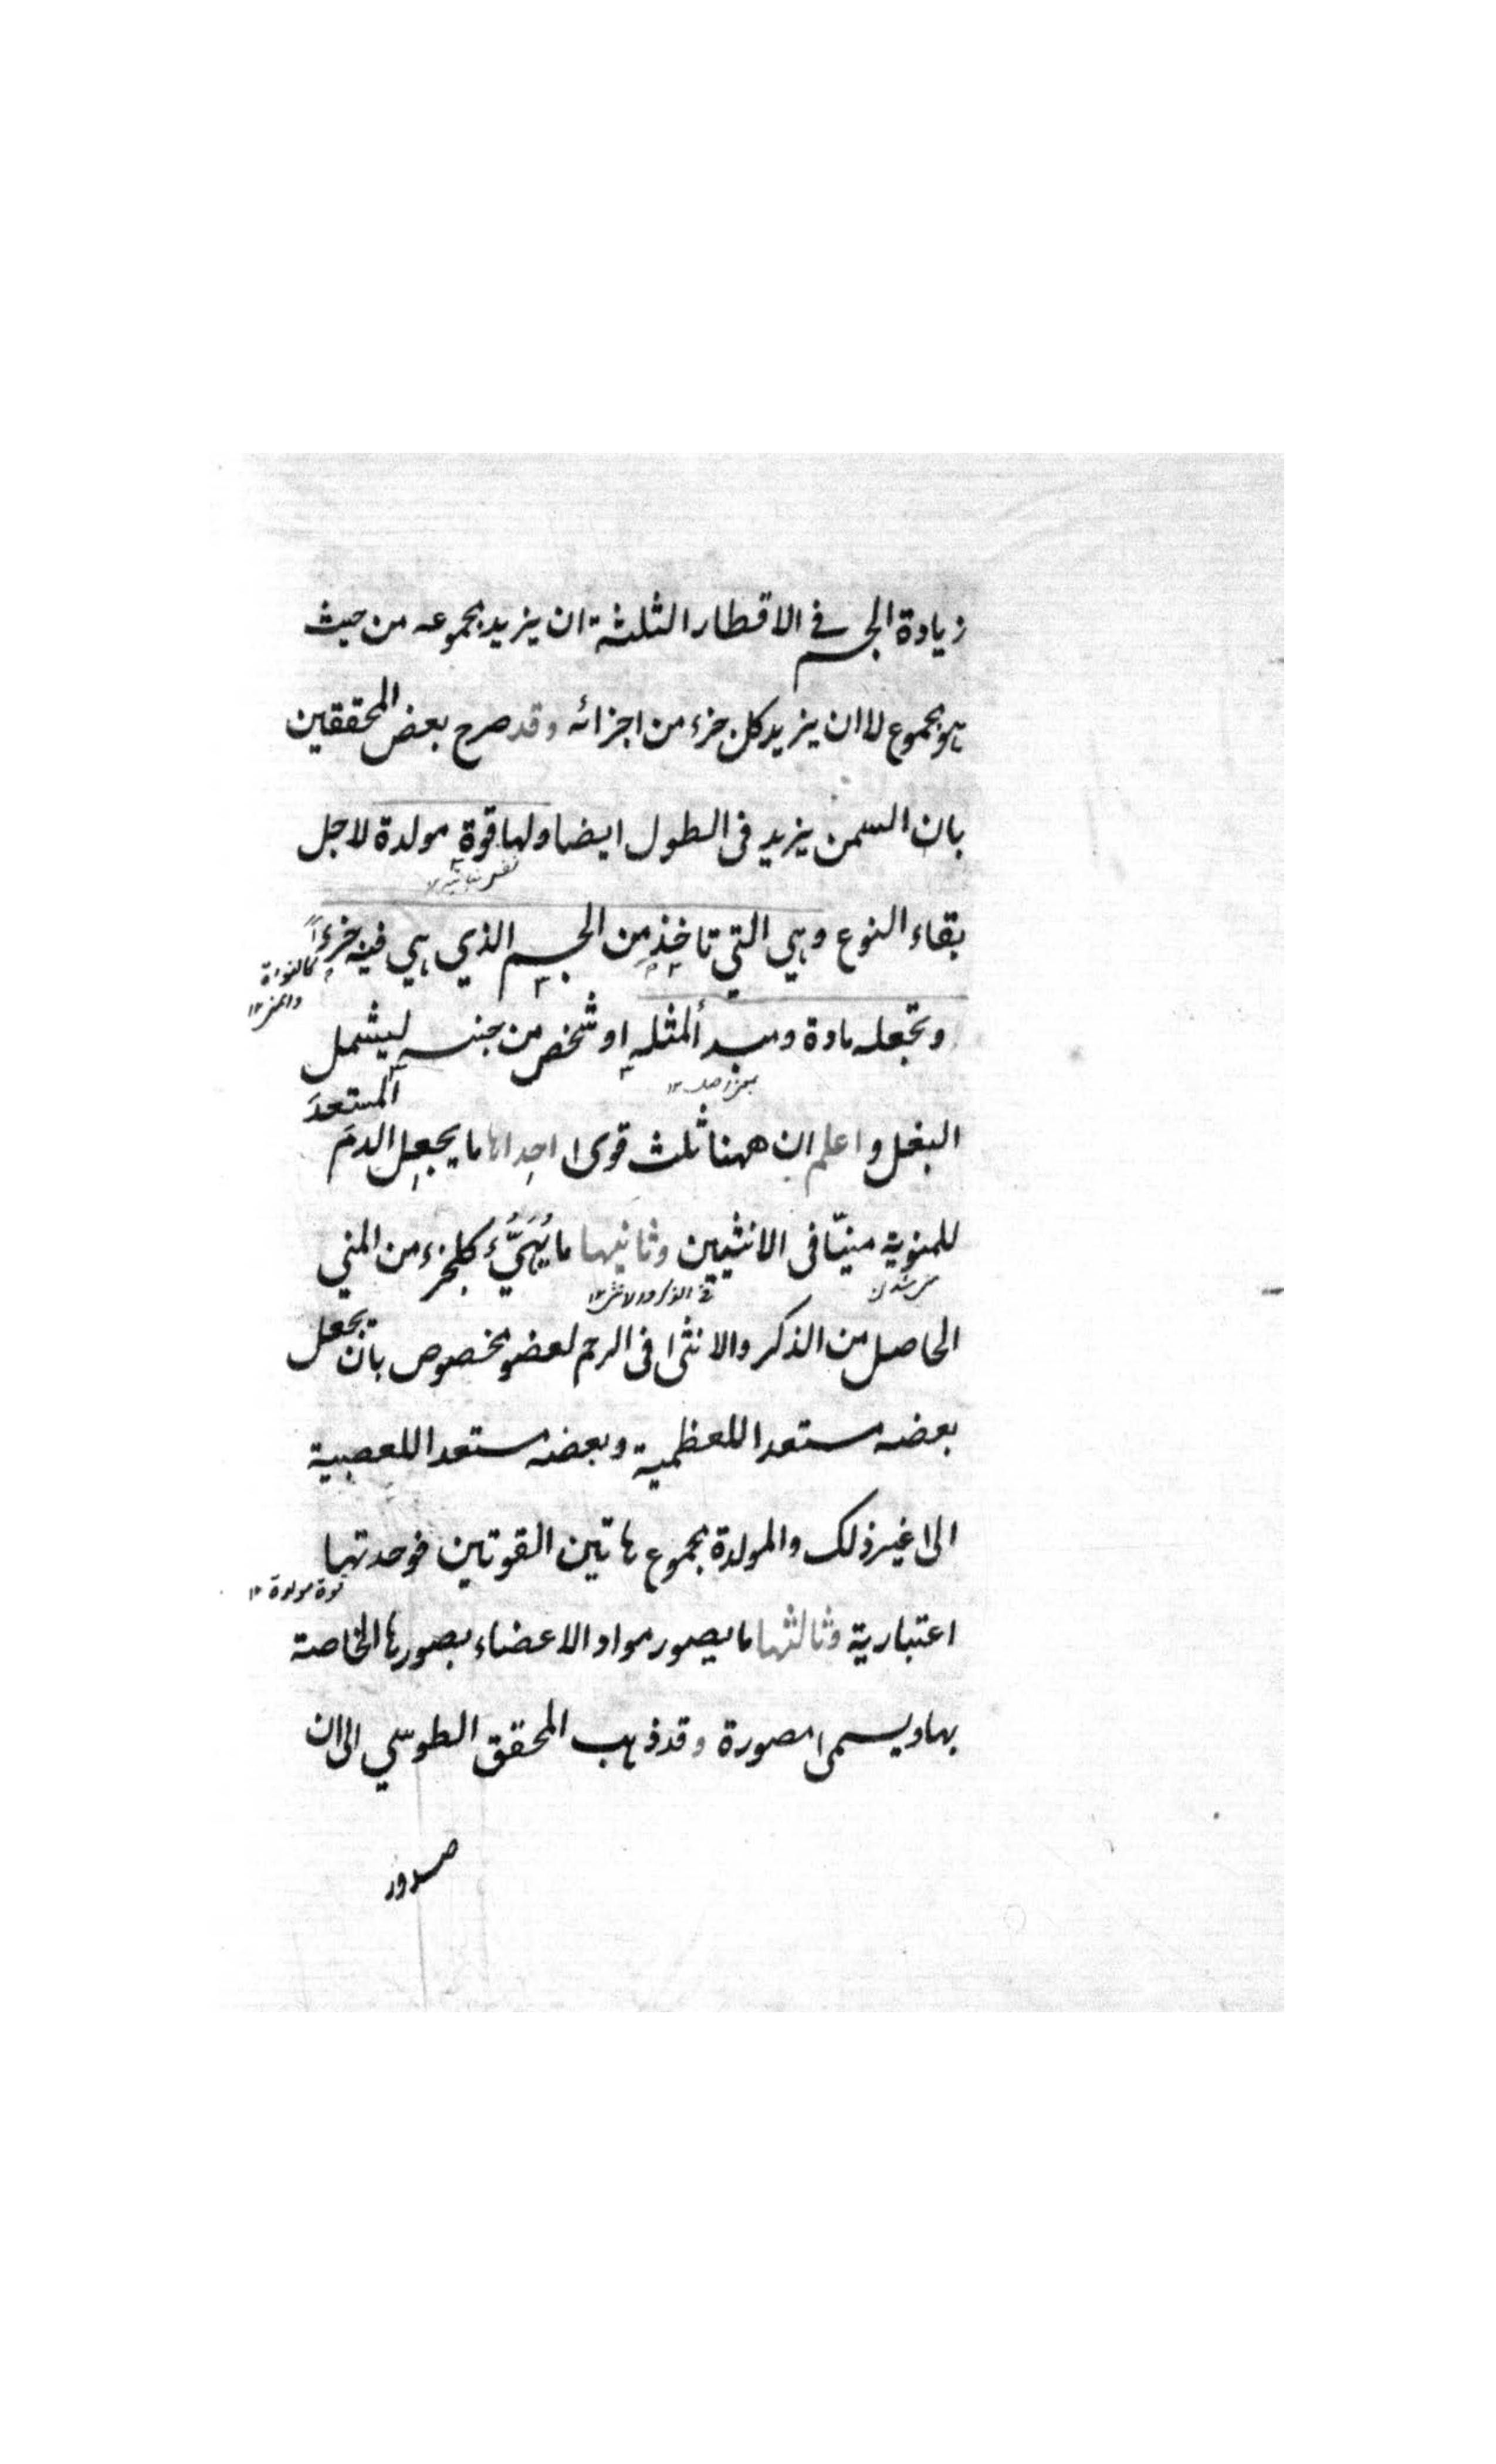 زيادة الجسم في الاقطار الثلثة ان يزيد مجموعه من حيث
هو مجموع لا ان يزيد كل جزء من اجزائه وقد صرح بعض المحققين
بان السمن يزيد في الطول ايضا ولها قوة مولدة لاجل
بقاء النوع وهي التي تاخذ من الجسم الذي هي فيه جزءاً
كالنواة
وتجعله مادة ومبدأ لمثله او شخص من جنسه ليشمل
البغل واعلم ان ههنا ثلث قوى احداها ما يجعل الدمَ المستعدَ
للمنوية منيّا في الانثيين وثانيها ما يُهَيَّءُ كل جزء من المني
الحاصل من الذكر والانثى في الرحم لعضو مخصوص بان يجعل
بعضه مستعدا للعظمية وبعضه مستعدا للعصبية
الى غير ذلك والمولدة مجموع هاتين القوتين فوحدتها
قوة مولدة ١٢
اعتبارية وثالثها ما يصور مواد الاعضاء بصورها الخاصة
بها ويسمى مصورة وقد ذهب المحقق الطوسي الى ان
صدور